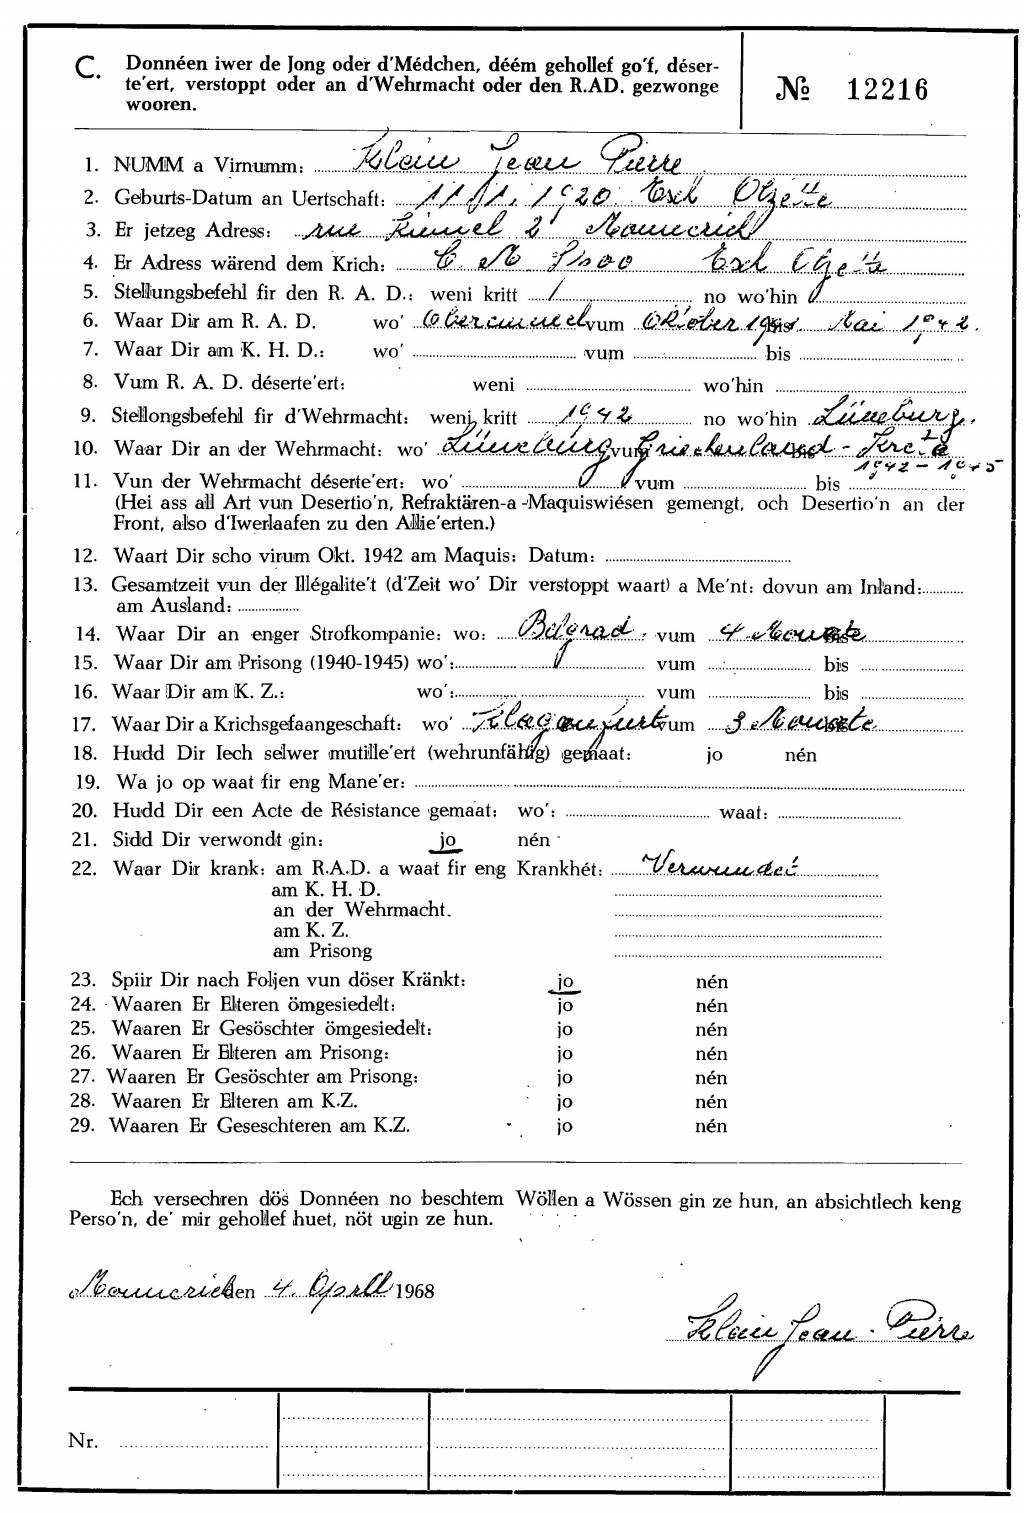 C. Donnéen iwer de Jong oder d'Médchen, déém gehollef go'f, déser-
te'ert, verstoppt oder an d'Wehrmacht oder den R.AD. gezwonge
wooren.
№ 12216
1. NUMM a Virnumm: Klein Jean Pierre
2. Geburts-Datum an Uertschaft: 11.1.1920 Esch Olzette
3. Er jetzeg Adress: rue 2 Mamerich
4. Er Adress wärend dem Krich: Esch Olzette
5. Stellungsbefehl fir den R. A. D.: weni kritt / no wo'hin
6. Waar Dir am R. A. D. wo' vum Oktober 1941 bis Mai 1942.
7. Waar Dir am K. H. D.: wo' vum bis
8. Vum R. A. D. déserte'ert: weni wo'hin
9. Stellongsbefehl fir d'Wehrmacht: weni kritt 1942 no wo'hin Lüneburg.
10. Waar Dir an der Wehrmacht: wo' Lüneburg vum Griechenland - Kreta
1942-1945
11. Vun der Wehrmacht déserte'ert: wo' vum bis
(Hei ass all Art vun Desertio'n, Refraktären-a -Maquiswiésen gemengt, och Desertio'n an der
Front, also d'Iwerlaafen zu den Allie'erten.)
12. Waart Dir scho virum Okt. 1942 am Maquis: Datum:
13. Gesamtzeit vun der Illégalite't (d'Zeit wo' Dir verstoppt waart) a Me'nt: dovun am Inland:
am Ausland:
14. Waar Dir an enger Strofkompanie: wo: Belgrad. vum 4 Monate bis
15. Waar Dir am Prisong (1940-1945) wo': vum bis
16. Waar Dir am K. Z.: wo': vum bis
17. Waar Dir a Krichsgefaangeschaft: wo' Klagenfurt vum 3 Monate bis
18. Hudd Dir Iech selwer mutille'ert (wehrunfähig) gemaat: jo nén
19. Wa jo op waat fir eng Mane'er:
20. Hudd Dir een Acte de Résistance gemaat: wo': waat:
21. Sidd Dir verwondt gin: jo nén
22. Waar Dir krank: am R.A.D. a waat fir eng Krankhét: Verwundet
am K. H. D.
an der Wehrmacht.
am K. Z.
am Prisong
23. Spiir Dir nach Foljen vun döser Kränkt: jo nén
24. Waaren Er Elteren ömgesiedelt: jo nén
25. Waaren Er Gesöschter ömgesiedelt: jo nén
26. Waaren Er Elteren am Prisong: jo nén
27. Waaren Er Gesöschter am Prisong: jo nén
28. Waaren Er Elteren am K.Z. jo nén
29. Waaren Er Geseschteren am K.Z. jo nén
Ech versechren dös Donnéen no beschtem Wöllen a Wössen gin ze hun, an absichtlech keng
Perso'n, de' mir gehollef huet, nöt ugin ze hun.
Mamerich den 4. April 1968
Klein Jean-Pierre
Nr.